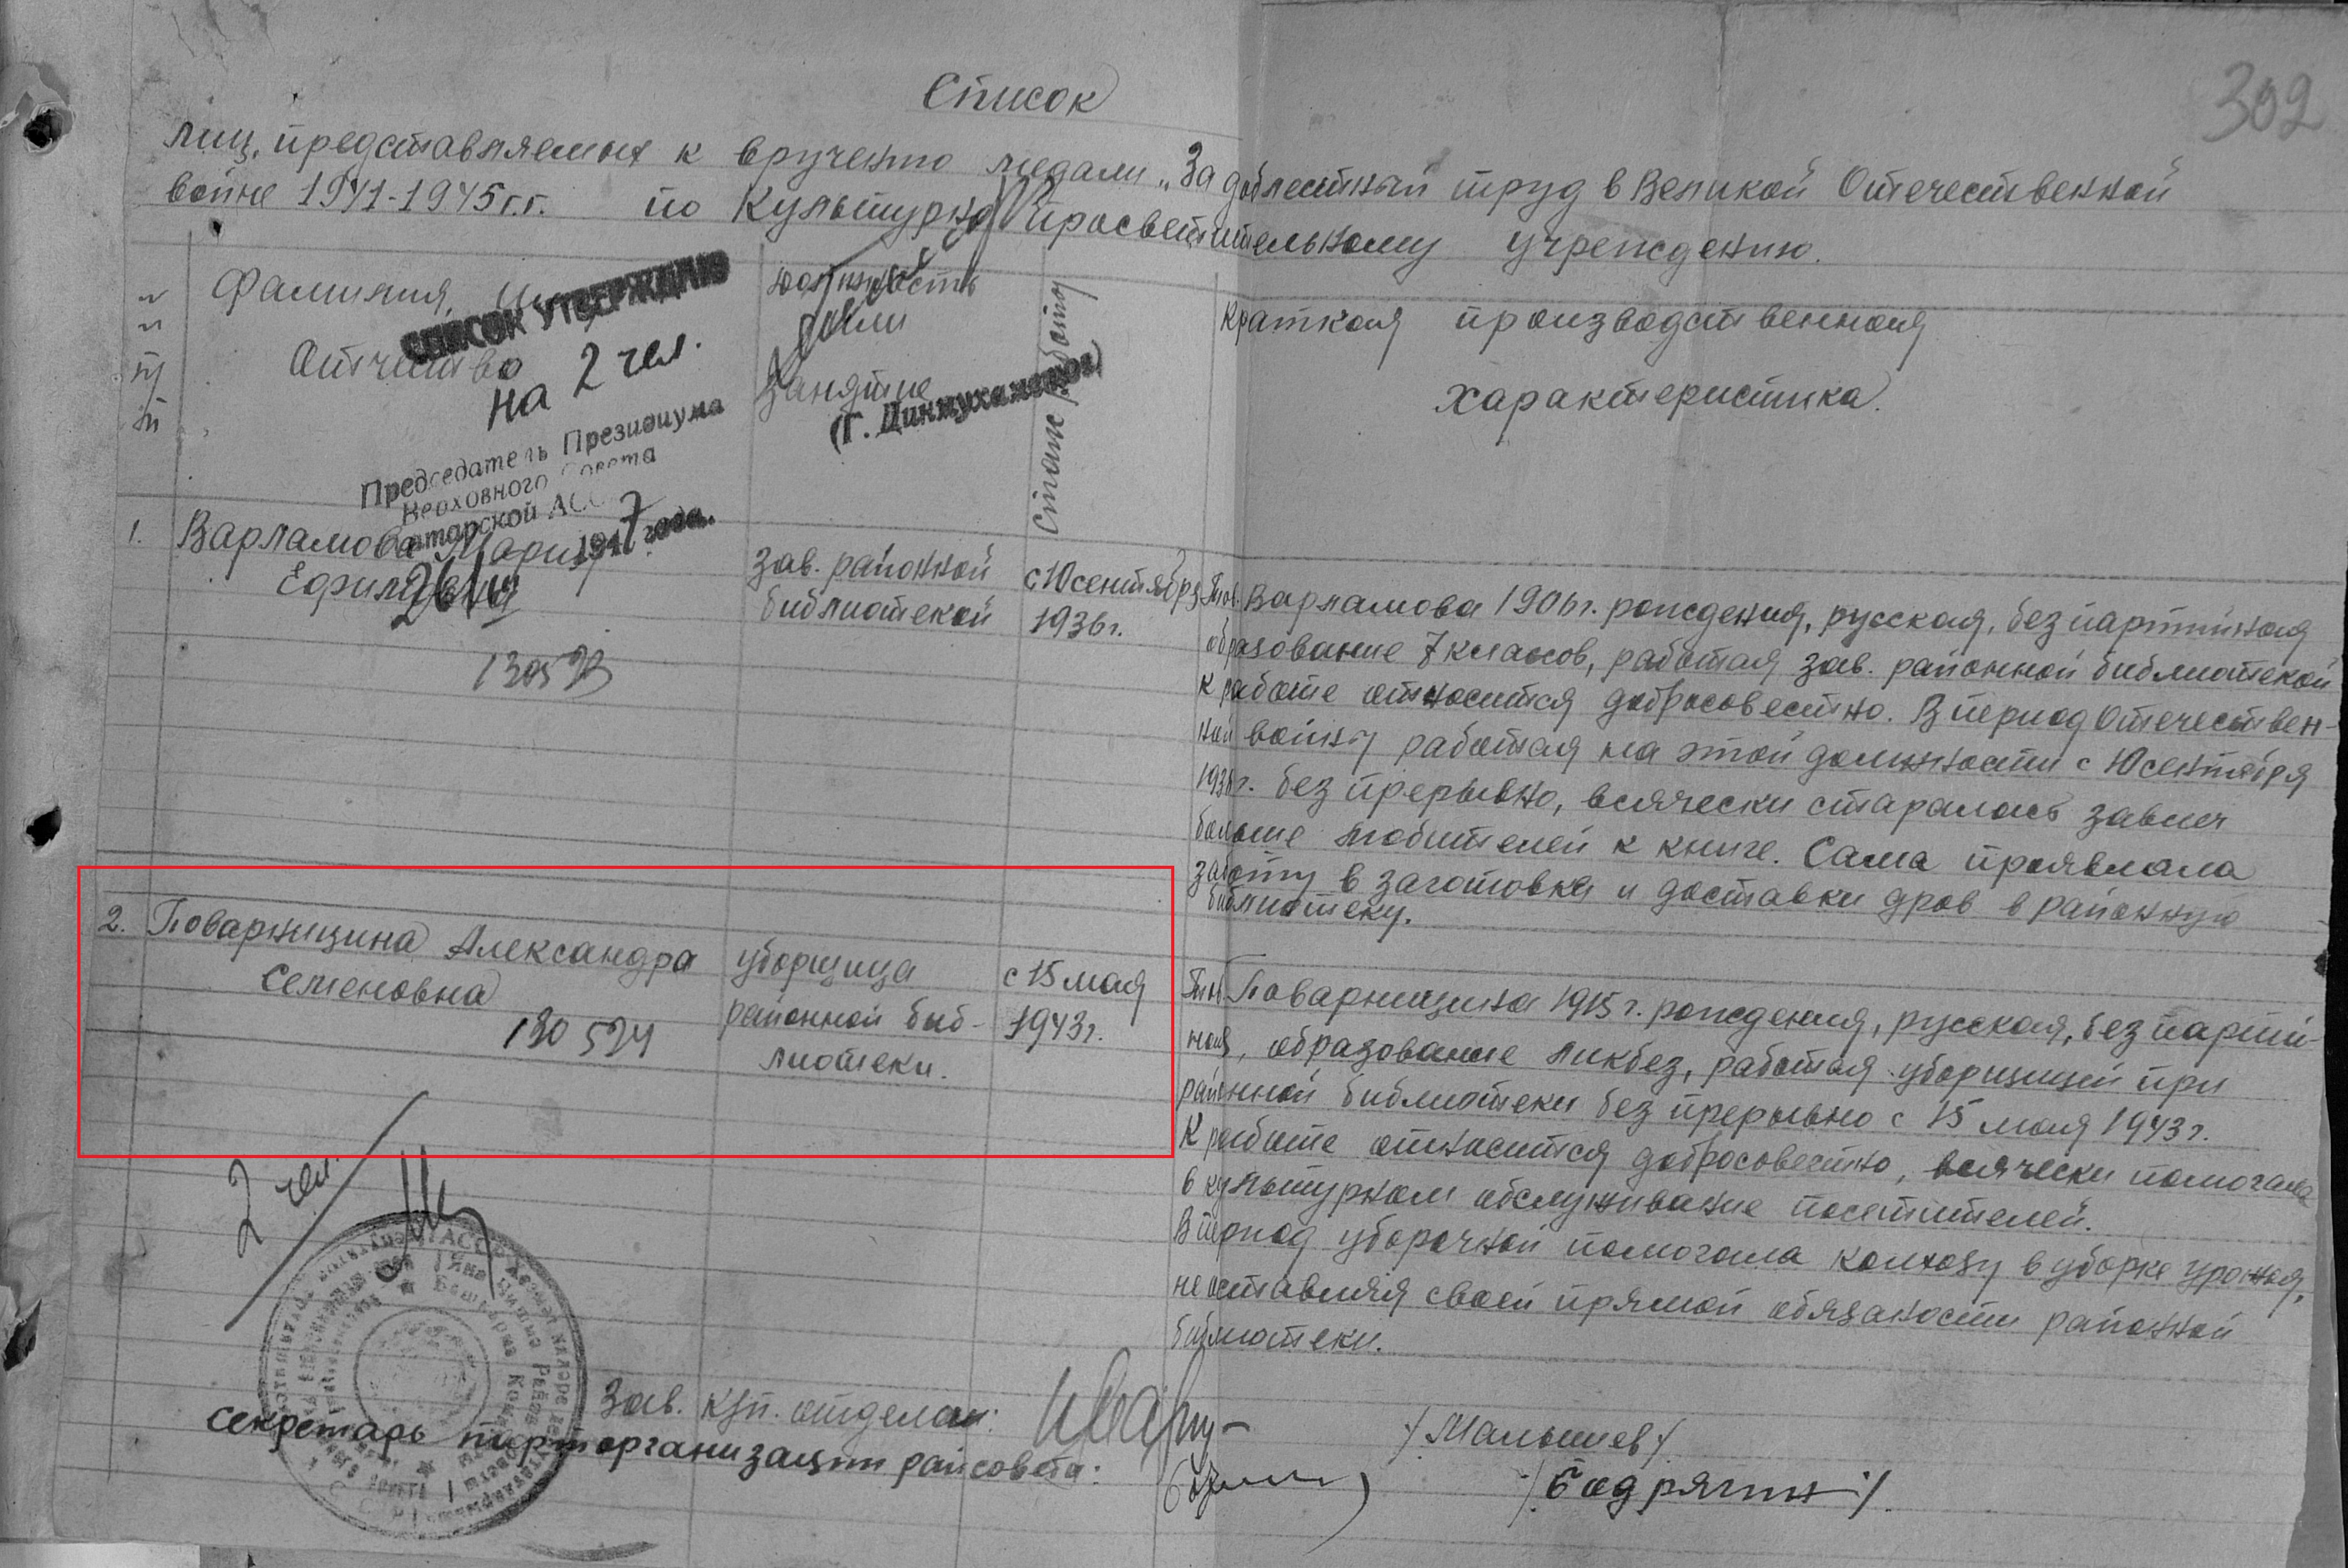 302
Список
лиц, представляемых к вручению медали „За доблестный труд в Великой Отечественной
войне 1941-1945 г.г. по Культурно Просветительному учреждению.
Фамилия,
Отчество
должность
или
занятие
Стаж работы
Краткая производственная
характеристика.
СПИСОК УТВЕРЖДАЮ
на 2 чел.
Председатель Президиума
Верховного Совета
атарской АСС
1947 года.
(Г. Динмухаметов)
1. Варламова Мария
зав. районной
библиотекой
с 10 сентября
1936 г.
Тов. Варламова 1906 г. рождения, русская, без партийная
образование 7 классов, работая зав. районной библиотекой
к работе относится добросовестно. В период Отечествен-
ной войны работая на этой должности с 10 сентября
1936 г. без прерывно, всячески старалась завлеч
больше любителей к книге. Сама проявляла
заботу в заготовке и доставки дров в районную
библиотеку.
2. Поварницина Александра
Семеновна
130 524
уборщица
районной биб-
лиотеки.
с 15 мая
1943 г.
Тов. Поварницина 1915 г. рождения, русская, без партий-
ная, образование ликбез, работая уборщицей при
районной библиотеки без прерывно с 15 мая 1943 г.
К работе относится добросовестно, всячески помогала
в культурном обслуживание посетителей.
В период уборочной помогала колхозу в уборке урожая,
не оставляя своей прямой обязаности районной
библиотеки.
2 чел.
Зав. КП. отделом:
/Малышев/
секретарь парторганизации райсовета:
/Бадрягин/.